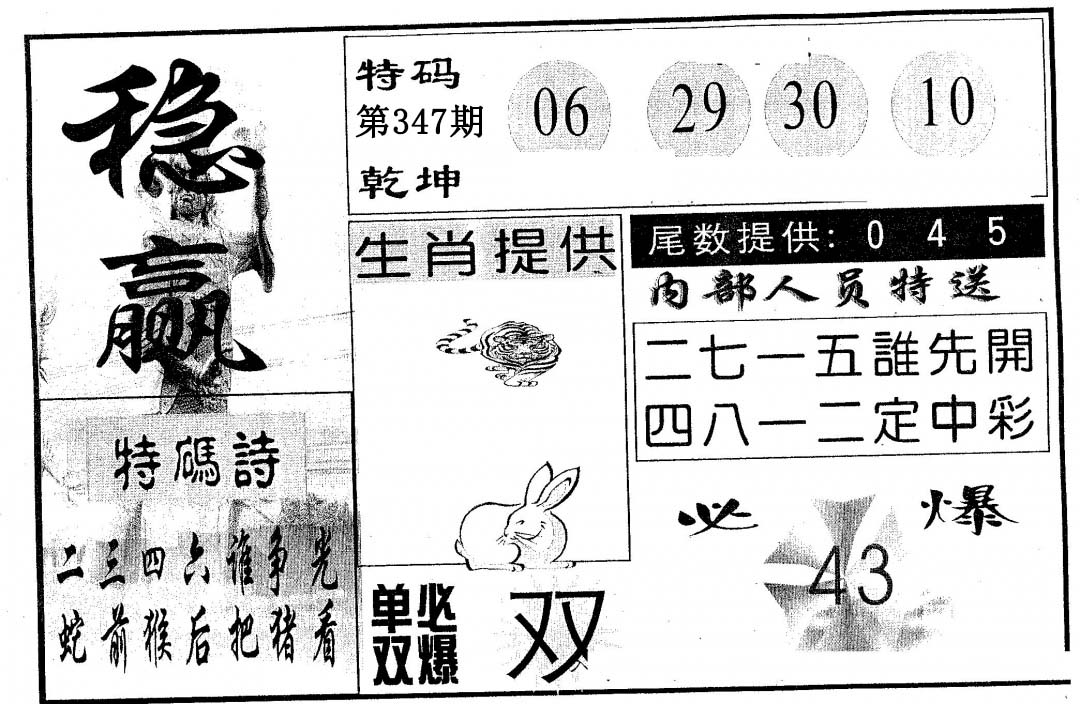 稳赢
特码
第347期
乾坤
06 29 30 10
生肖提供
尾数提供: 0 4 5
内部人员特送
二七一五誰先開
四八一二定中彩
特碼詩
二三四六谁争光
蛇前猴后把猪看
单双必爆
双
必爆
43